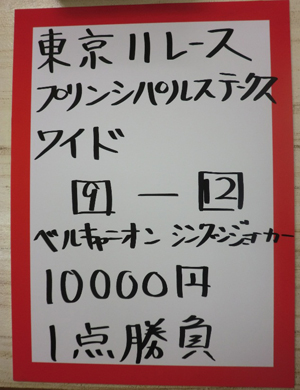 東京11レース
プリンシパルステークス
ワイド
9 ― 12
ベルキャニオン シングンジョーカー
10000円
1点勝負